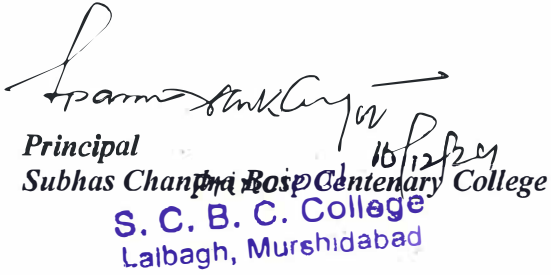 10/12/24
Principal
Subhas Chandra Bose Centenary College
Principal
S. C. B. C. College
Lalbagh, Murshidabad